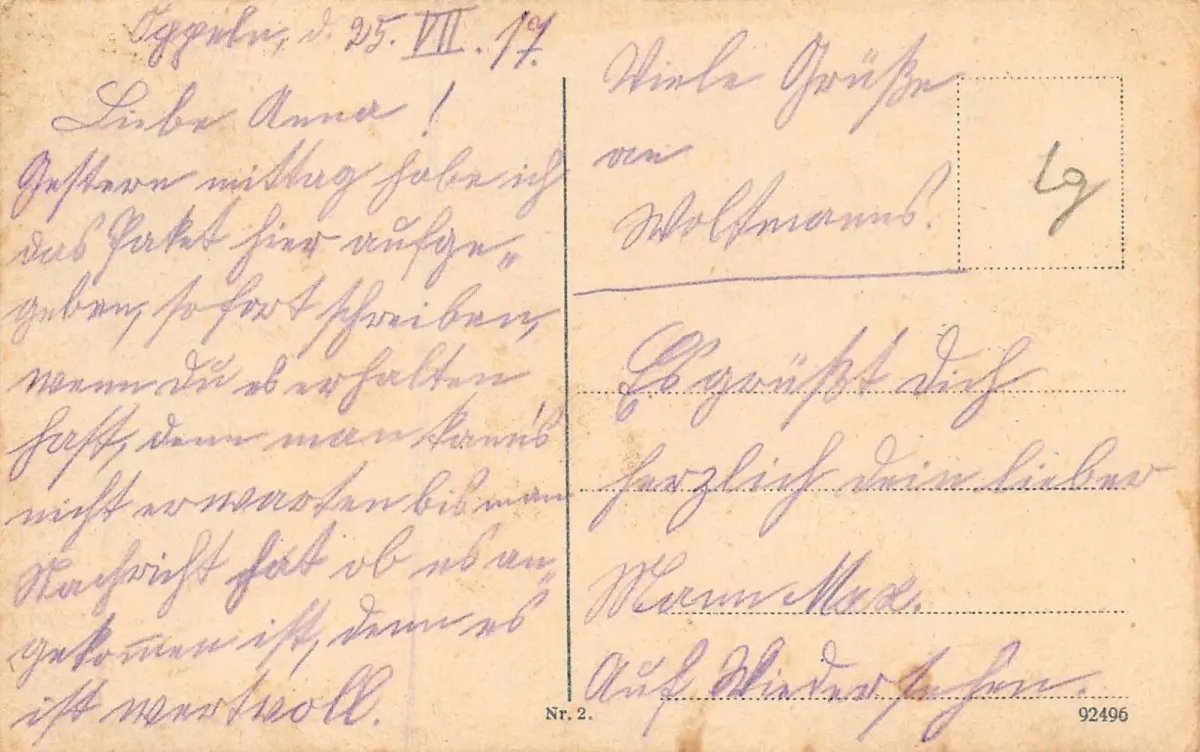 Oppeln, d. 25. VII. 17.
Liebe Anna!
Gestern mittag habe ich
das Paket hier aufge-
geben, sofort schreiben,
wenn Du es erhalten
hast, denn man kann's
nicht erwarten bis man
Nachricht hat ob es an-
gekom̅en ist, denn es
ist wertvoll.
Viele Grüße
an
Woltmanns.
Es grüßt Dich
herzlich dein lieber
Mann Max.
Auf Wiedersehen.
Nr. 2.
92496